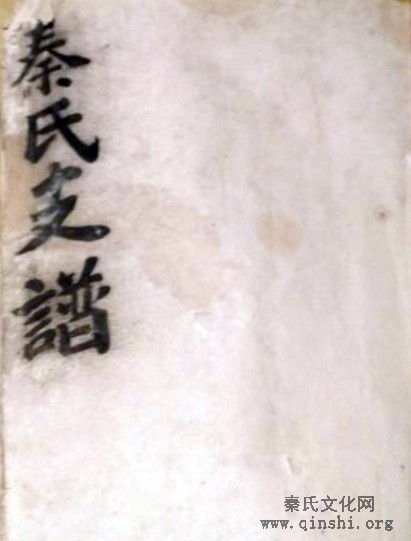 秦氏支譜
秦氏文化网
www.qinshi.org